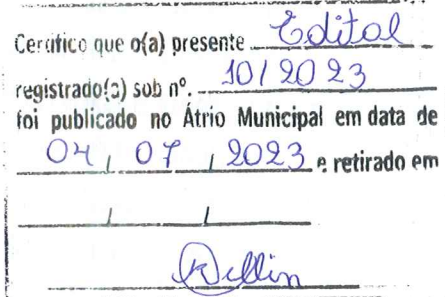 Certifico que o(a) presente Edital
registrado(a) sob nº. 10/2023
foi publicado no Átrio Municipal em data de
04 / 07 / 2023 e retirado em
/ /